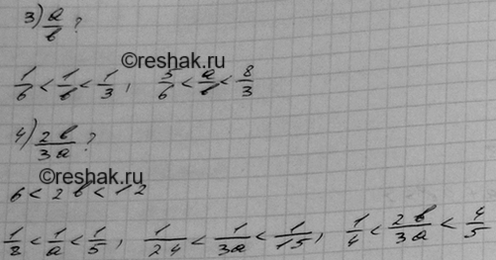 3) a/b ?
©reshak.ru
1/6 < 1/b < 1/3, 5/6 < a/b < 8/3
4) 2b/3a ?
©reshak.ru
6 < 2b < 12
1/8 < 1/a < 1/5, 1/24 < 1/3a < 1/15, 1/4 < 2b/3a < 4/5